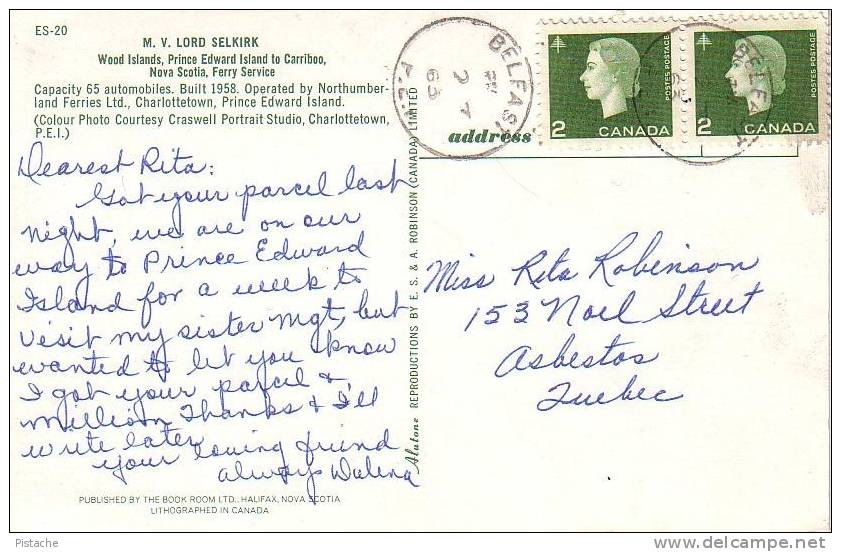 ES-20
M. V. LORD SELKIRK
Wood Islands, Prince Edward Island to Carriboo,
Nova Scotia, Ferry Service
Capacity 65 automobiles. Built 1958. Operated by Northumber-
land Ferries Ltd., Charlottetown, Prince Edward Island.
(Colour Photo Courtesy Craswell Portrait Studio, Charlottetown,
P.E.I.)
Dearest Rita:
Got your parcel last
night, we are on our
way to Prince Edward
Island for a week to
visit my sister Mgt, but
wanted to let you know
I got your parcel &
million Thanks & I'll
write later
your loving friend
always
PUBLISHED BY THE BOOK ROOM LTD., HALIFAX, NOVA SCOTIA
LITHOGRAPHED IN CANADA
Alutone REPRODUCTIONS BY E. S. & A. ROBINSON (CANADA) LIMITED
BELFAST
63
address
POSTES POSTAGE
2 CANADA
POSTES POSTAGE
2 CANADA
Miss Rita Robinson
153 Noel Street
Asbestos
Quebec
Pistache
www.delcampe.net